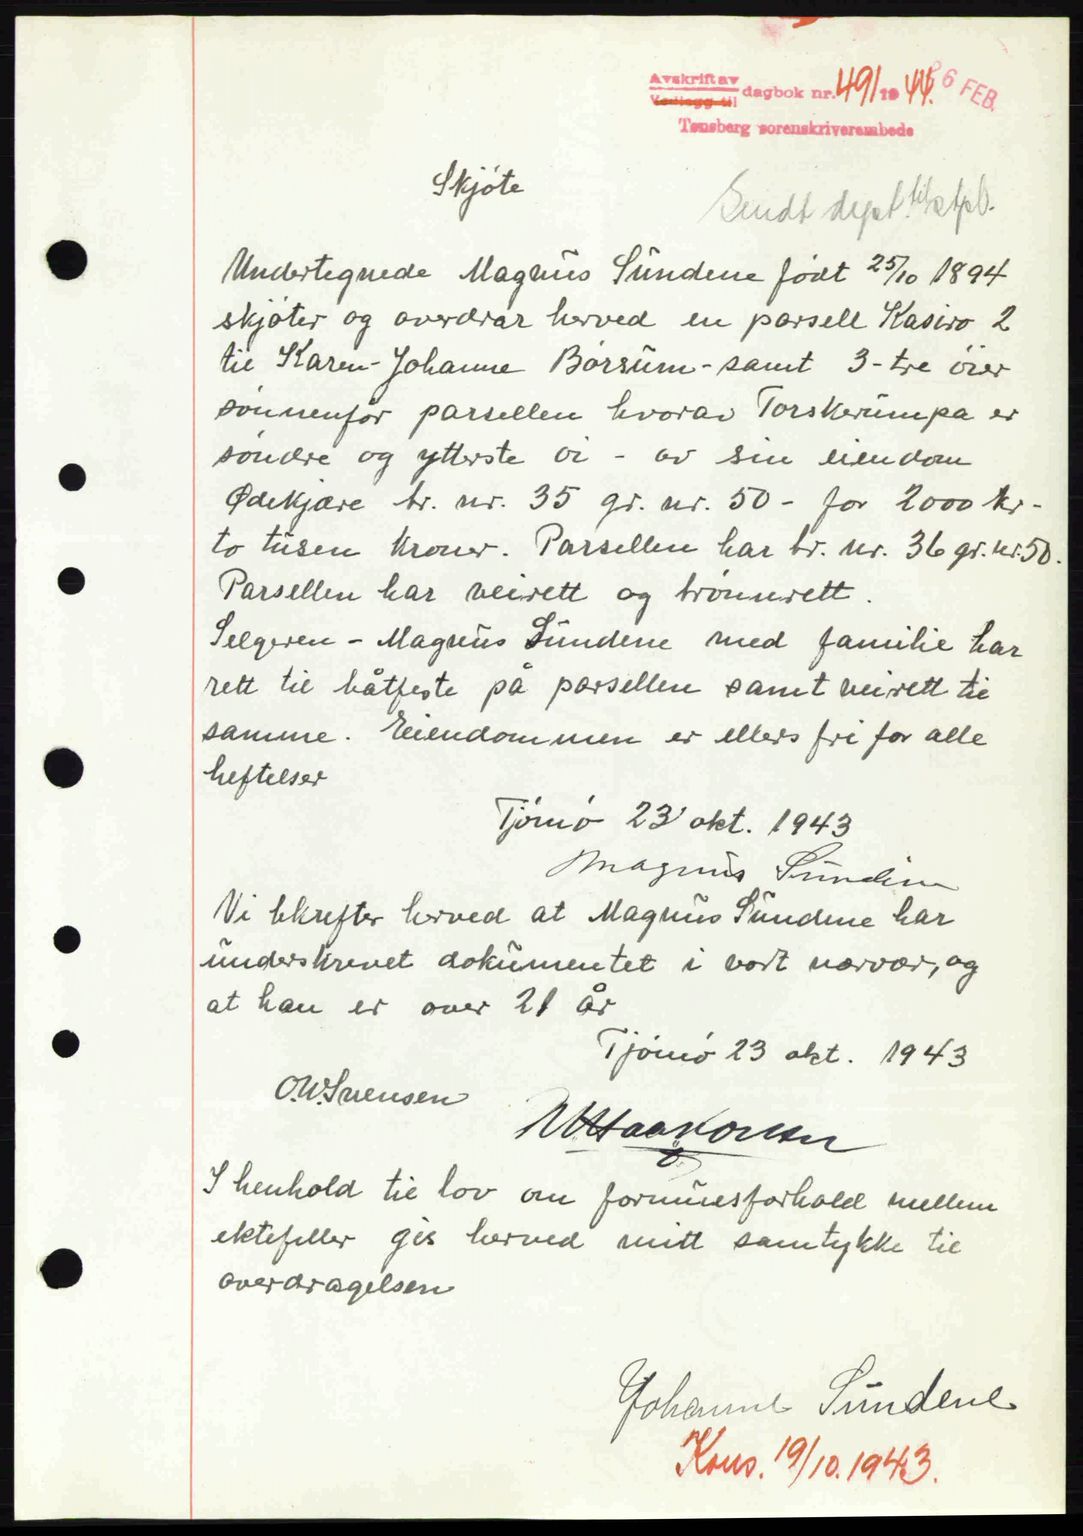 Avskrift av
Vedlegg til dagbok nr. 491 19 44.
6 FEB.
Tønsberg sorenskriverembede
Skjöte
Sendt dept. til stpl.
Undertegnede Magnus Sundene født 25/10 1894
skjöter og overdrar herved en parsell Kasiro 2
til Karen-Johanne Börsum - samt 3-tre öier
sönnenfor parsellen hvorav Torskerumpa er
söndre og ytterste öi - av sin eiendom
Ødekjære br. nr. 35 gr. nr. 50 - for 2000 kr-
to tusen kroner. Parsellen har br. nr. 36 gr. nr. 50.
Parsellen har veirett og brönnrett.
Selgeren - Magnus Sundene med familie har
rett til båtfeste på parsellen samt veirett til
samme. Eiendommen er ellers fri for alle
heftelser
Tjömö 23 okt. 1943
Magnus Sundene
Vi bekrefter herved at Magnus Sundene har
underskrevet dokumentet i vort nærvær, og
at han er over 21 år
Tjömö 23 okt. 1943
O.W.Svensen
Haakonsen
I henhold til lov om formuesforhold mellem
ektefeller gis herved mitt samtykke til
overdragelsen
Johanne Sundene
Kons. 19/10.1943.